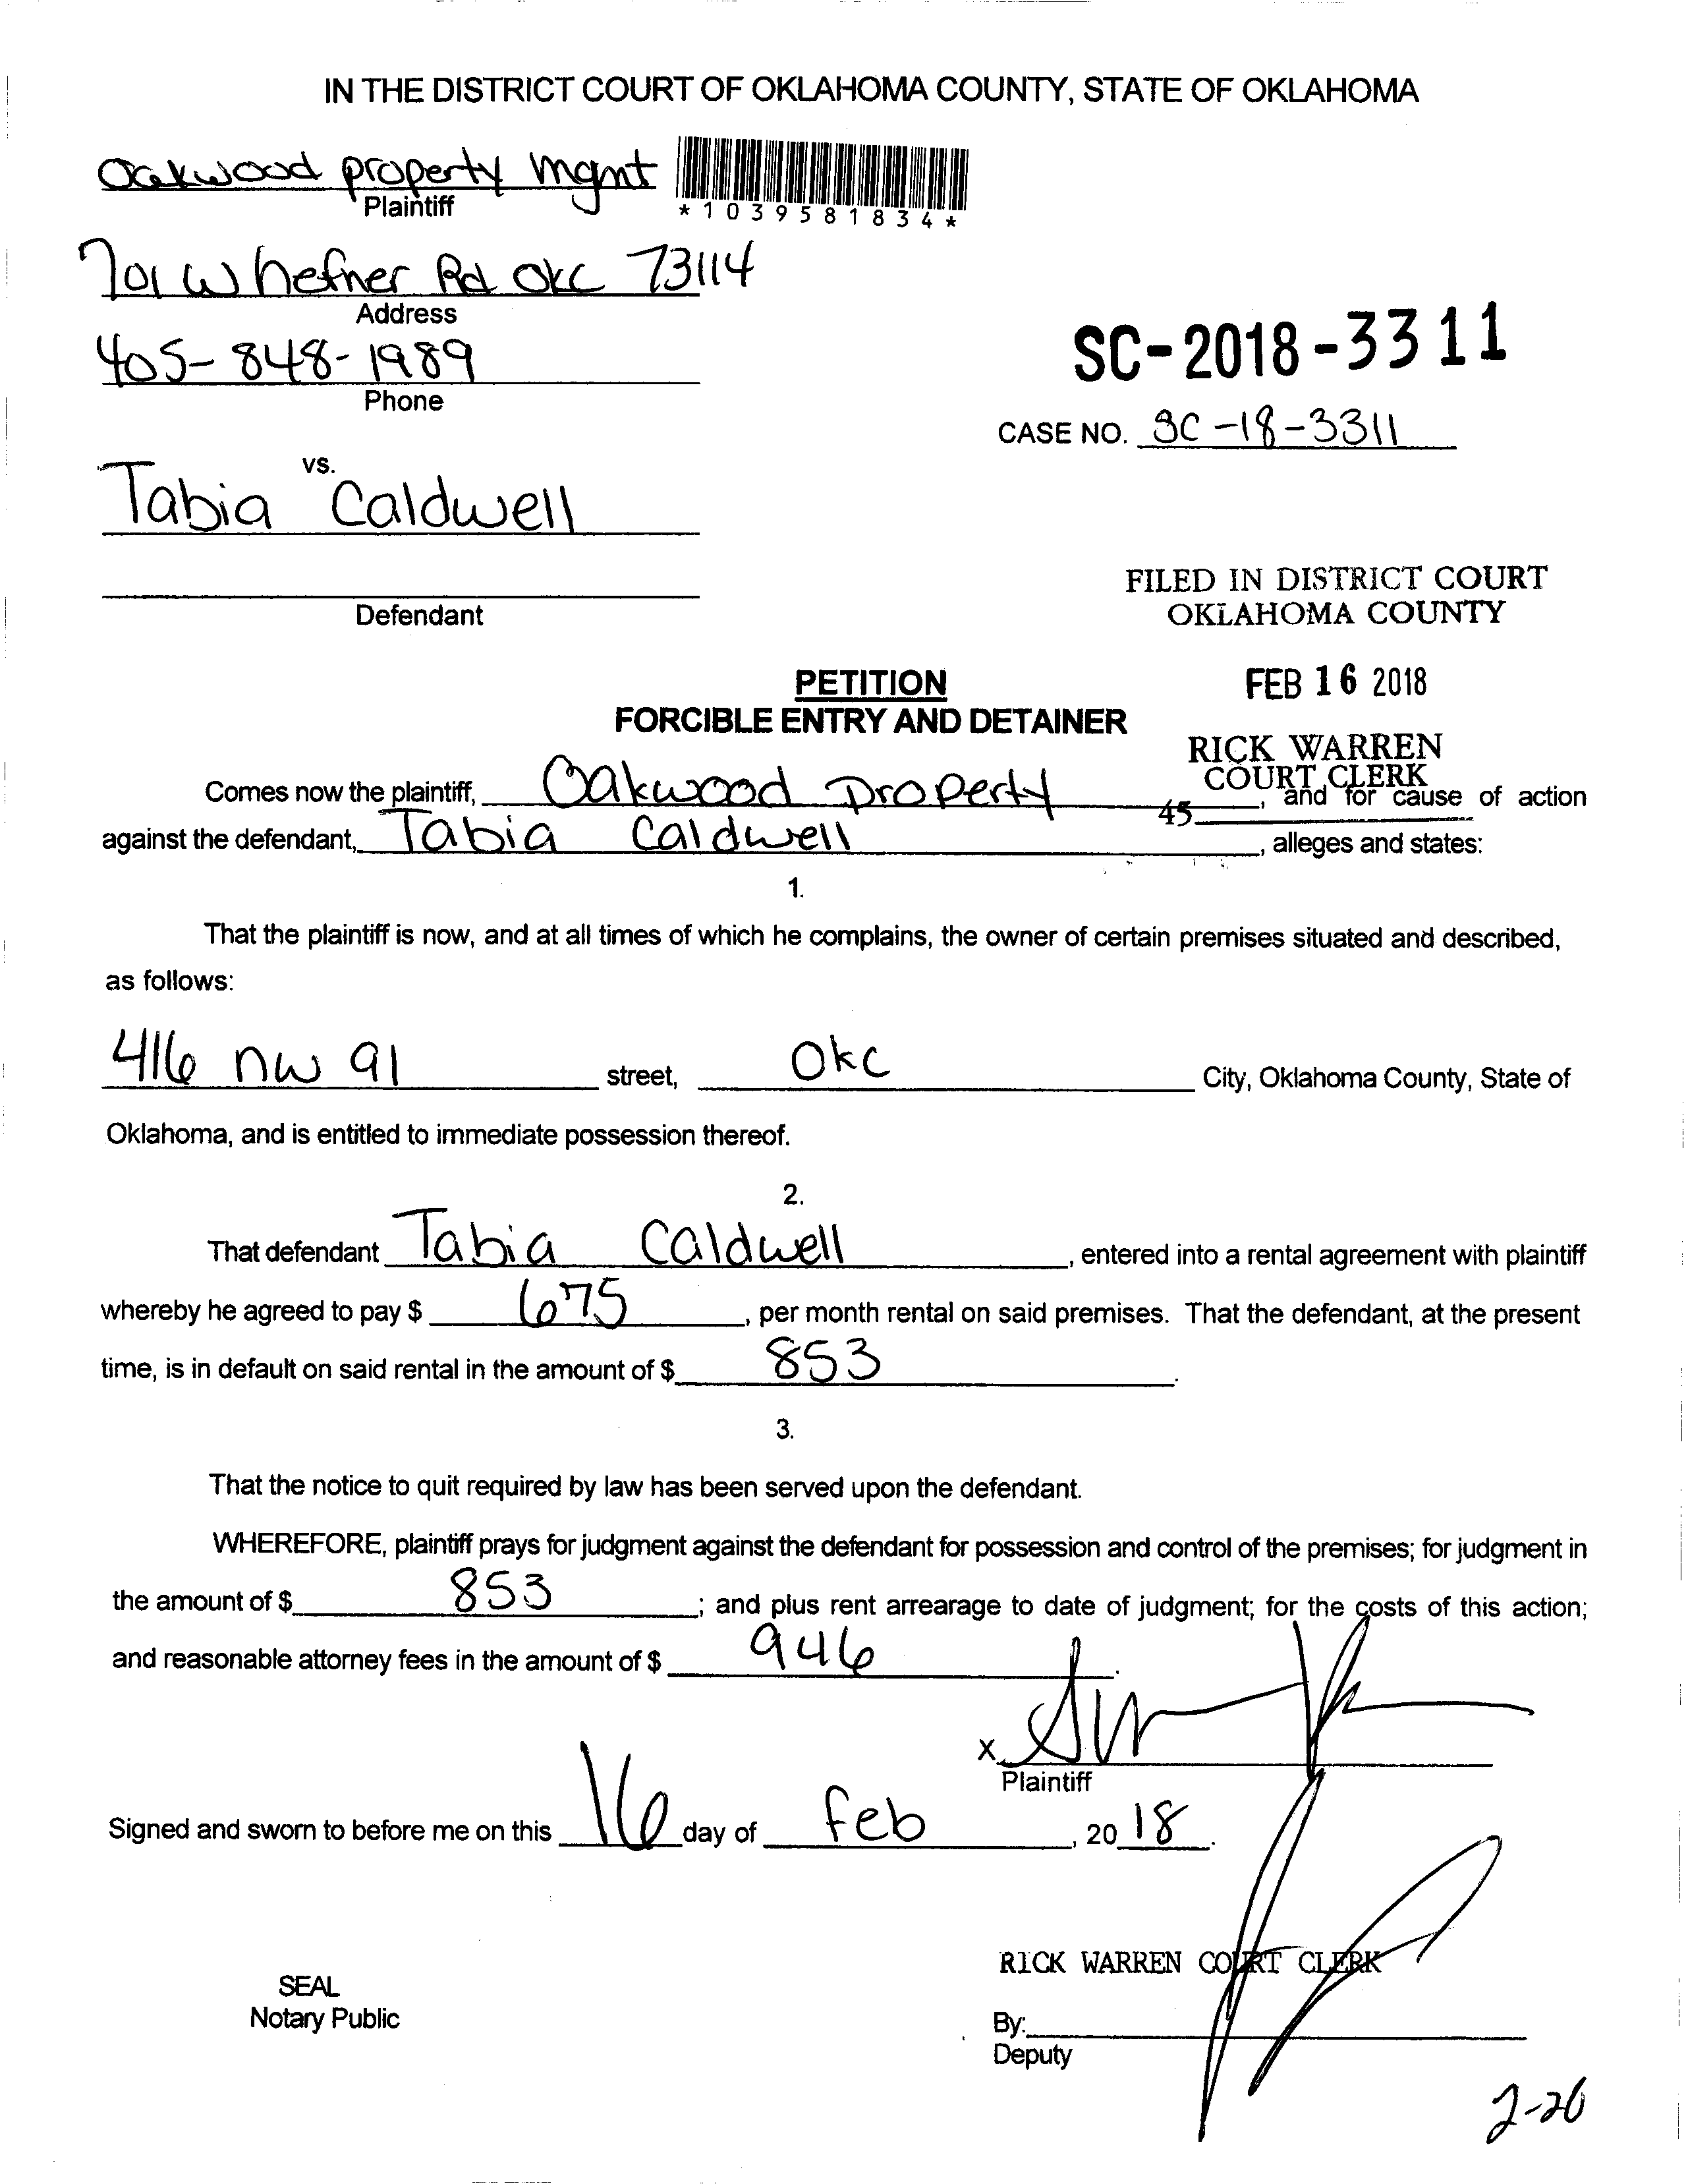 IN THE DISTRICT COURT OF OKLAHOMA COUNTY, STATE OF OKLAHOMA
Oakwood property mgmt
Plaintiff
*1039581834*
701 W hefner Rd OKC 73114
Address
405-848-1989
Phone
SC-2018-3311
CASE NO. SC-18-3311
vs.
Tabia Caldwell
Defendant
FILED IN DISTRICT COURT
OKLAHOMA COUNTY
FEB 16 2018
RICK WARREN
COURT CLERK
45
PETITION
FORCIBLE ENTRY AND DETAINER
Comes now the plaintiff, Oakwood Property, and for cause of action
against the defendant, Tabia Caldwell, alleges and states:
1.
That the plaintiff is now, and at all times of which he complains, the owner of certain premises situated and described,
as follows:
416 nw 91 street, OKC City, Oklahoma County, State of
Oklahoma, and is entitled to immediate possession thereof.
2.
That defendant Tabia Caldwell, entered into a rental agreement with plaintiff
whereby he agreed to pay $ 675, per month rental on said premises. That the defendant, at the present
time, is in default on said rental in the amount of $ 853.
3.
That the notice to quit required by law has been served upon the defendant.
WHEREFORE, plaintiff prays for judgment against the defendant for possession and control of the premises; for judgment in
the amount of $ 853; and plus rent arrearage to date of judgment; for the costs of this action;
and reasonable attorney fees in the amount of $ 946.
X
Plaintiff
Signed and sworn to before me on this 16 day of feb, 20 18.
RICK WARREN COURT CLERK
SEAL
Notary Public
By:
Deputy
2-26